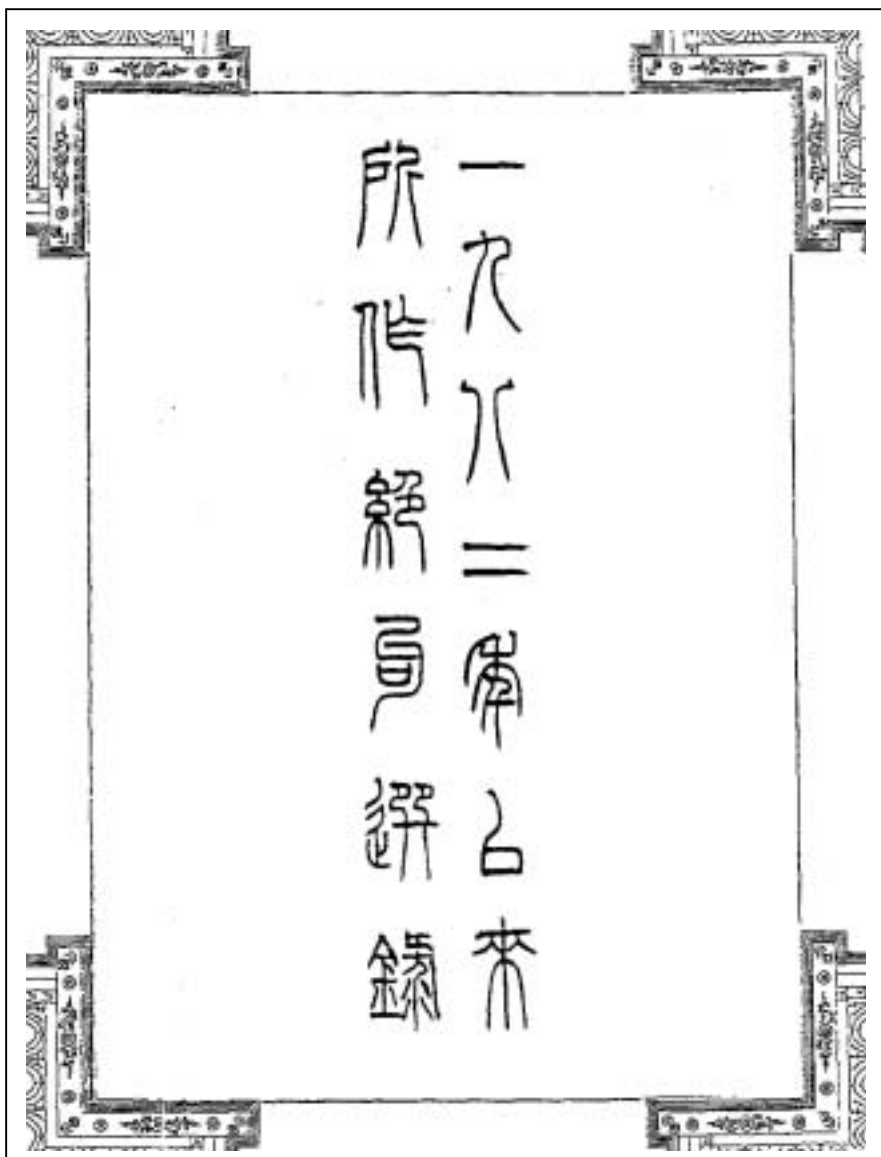 一九八二年以來
所作絕句選錄